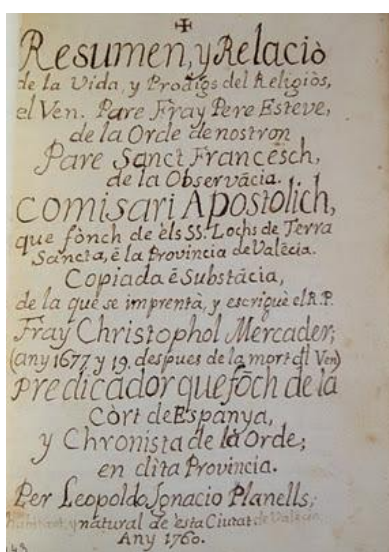 Resumen, y Relaciò
de la Vida, y Prodigs del Religiòs,
el Ven. Pare Fray Pere Esteve,
de la Orde de nostron
Pare Sanct Francesch,
de la Observãcia.
Comisari Apostòlich,
que fònch de els SS. Lochs de Terra
Sancta, ẽ la Provincia de Valẽcia.
Copiada ẽ Substácia,
de la que se imprentà, y escrigué el R. P.
Fray Christophol Mercader;
(any 1677 y 19. despues de la mort dl Ven)
predicador que fõch de la
Còrt de Espanya,
y Chronista de la Orde;
en dita Provincia.
Per Leopoldo Ignacio Planells;
habitant, y natural de esta Ciutat de Valencia
Any 1760.